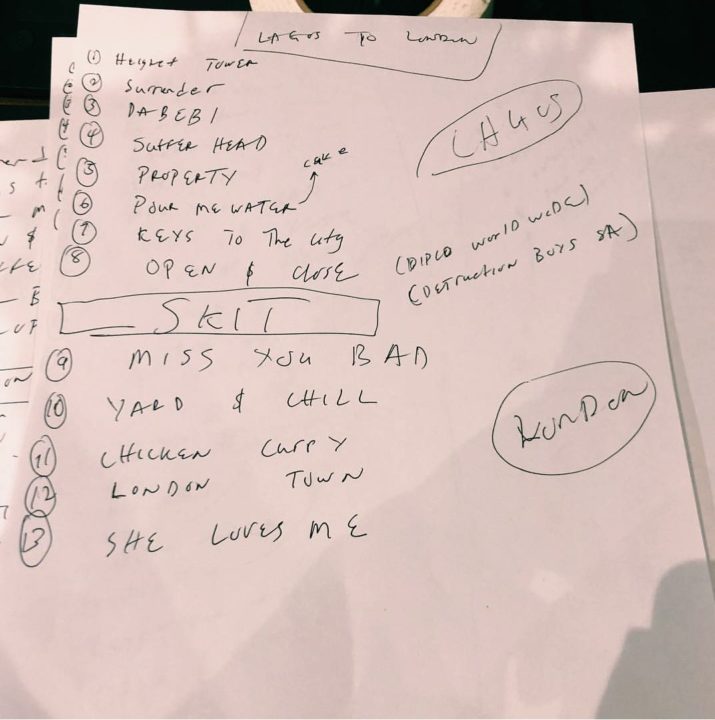 LAGOS TO LONDON
① Height TOWER
② Surrender
③ DABEBI
④ SUFFER HEAD
LAGOS
cake
⑤ PROPERTY
⑥ POUR ME WATER
⑦ KEYS To The city
⑧ OPEN & close
(DIPLO WORLD WIDE)
(DETRUCTION BOYS SA)
SKIT
⑨ MISS YOU BAD
⑩ YARD & CHILL
LONDON
11 CHICKEN CURRY
12 LONDON TOWN
13 SHE LOVES ME